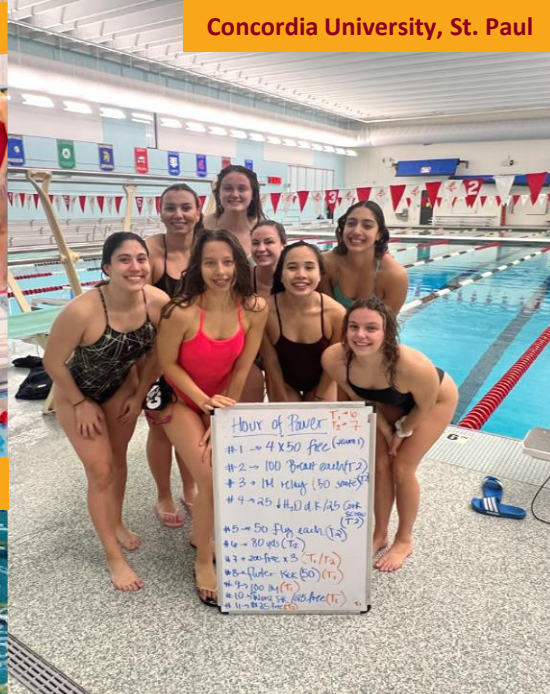 Concordia University, St. Paul
3
2
6
Hour of Power T₁→6
T₂→7
#1 → 4x50 free
#2 → 100 Breast each (T2)
#3 → IM relay (50
#4 → 25 ↓H₂O d.k/25
(T2)
#5 → 50 fly each (T2)
#6 → 80 yds (T2)
#7 → 200 free x 3 (T₁/T₂)
#8 → flutter Kick (50) (T₁)
#9 → 100 IM (T₁)
#10 → /25 free (T₁)
#11 → 25 free